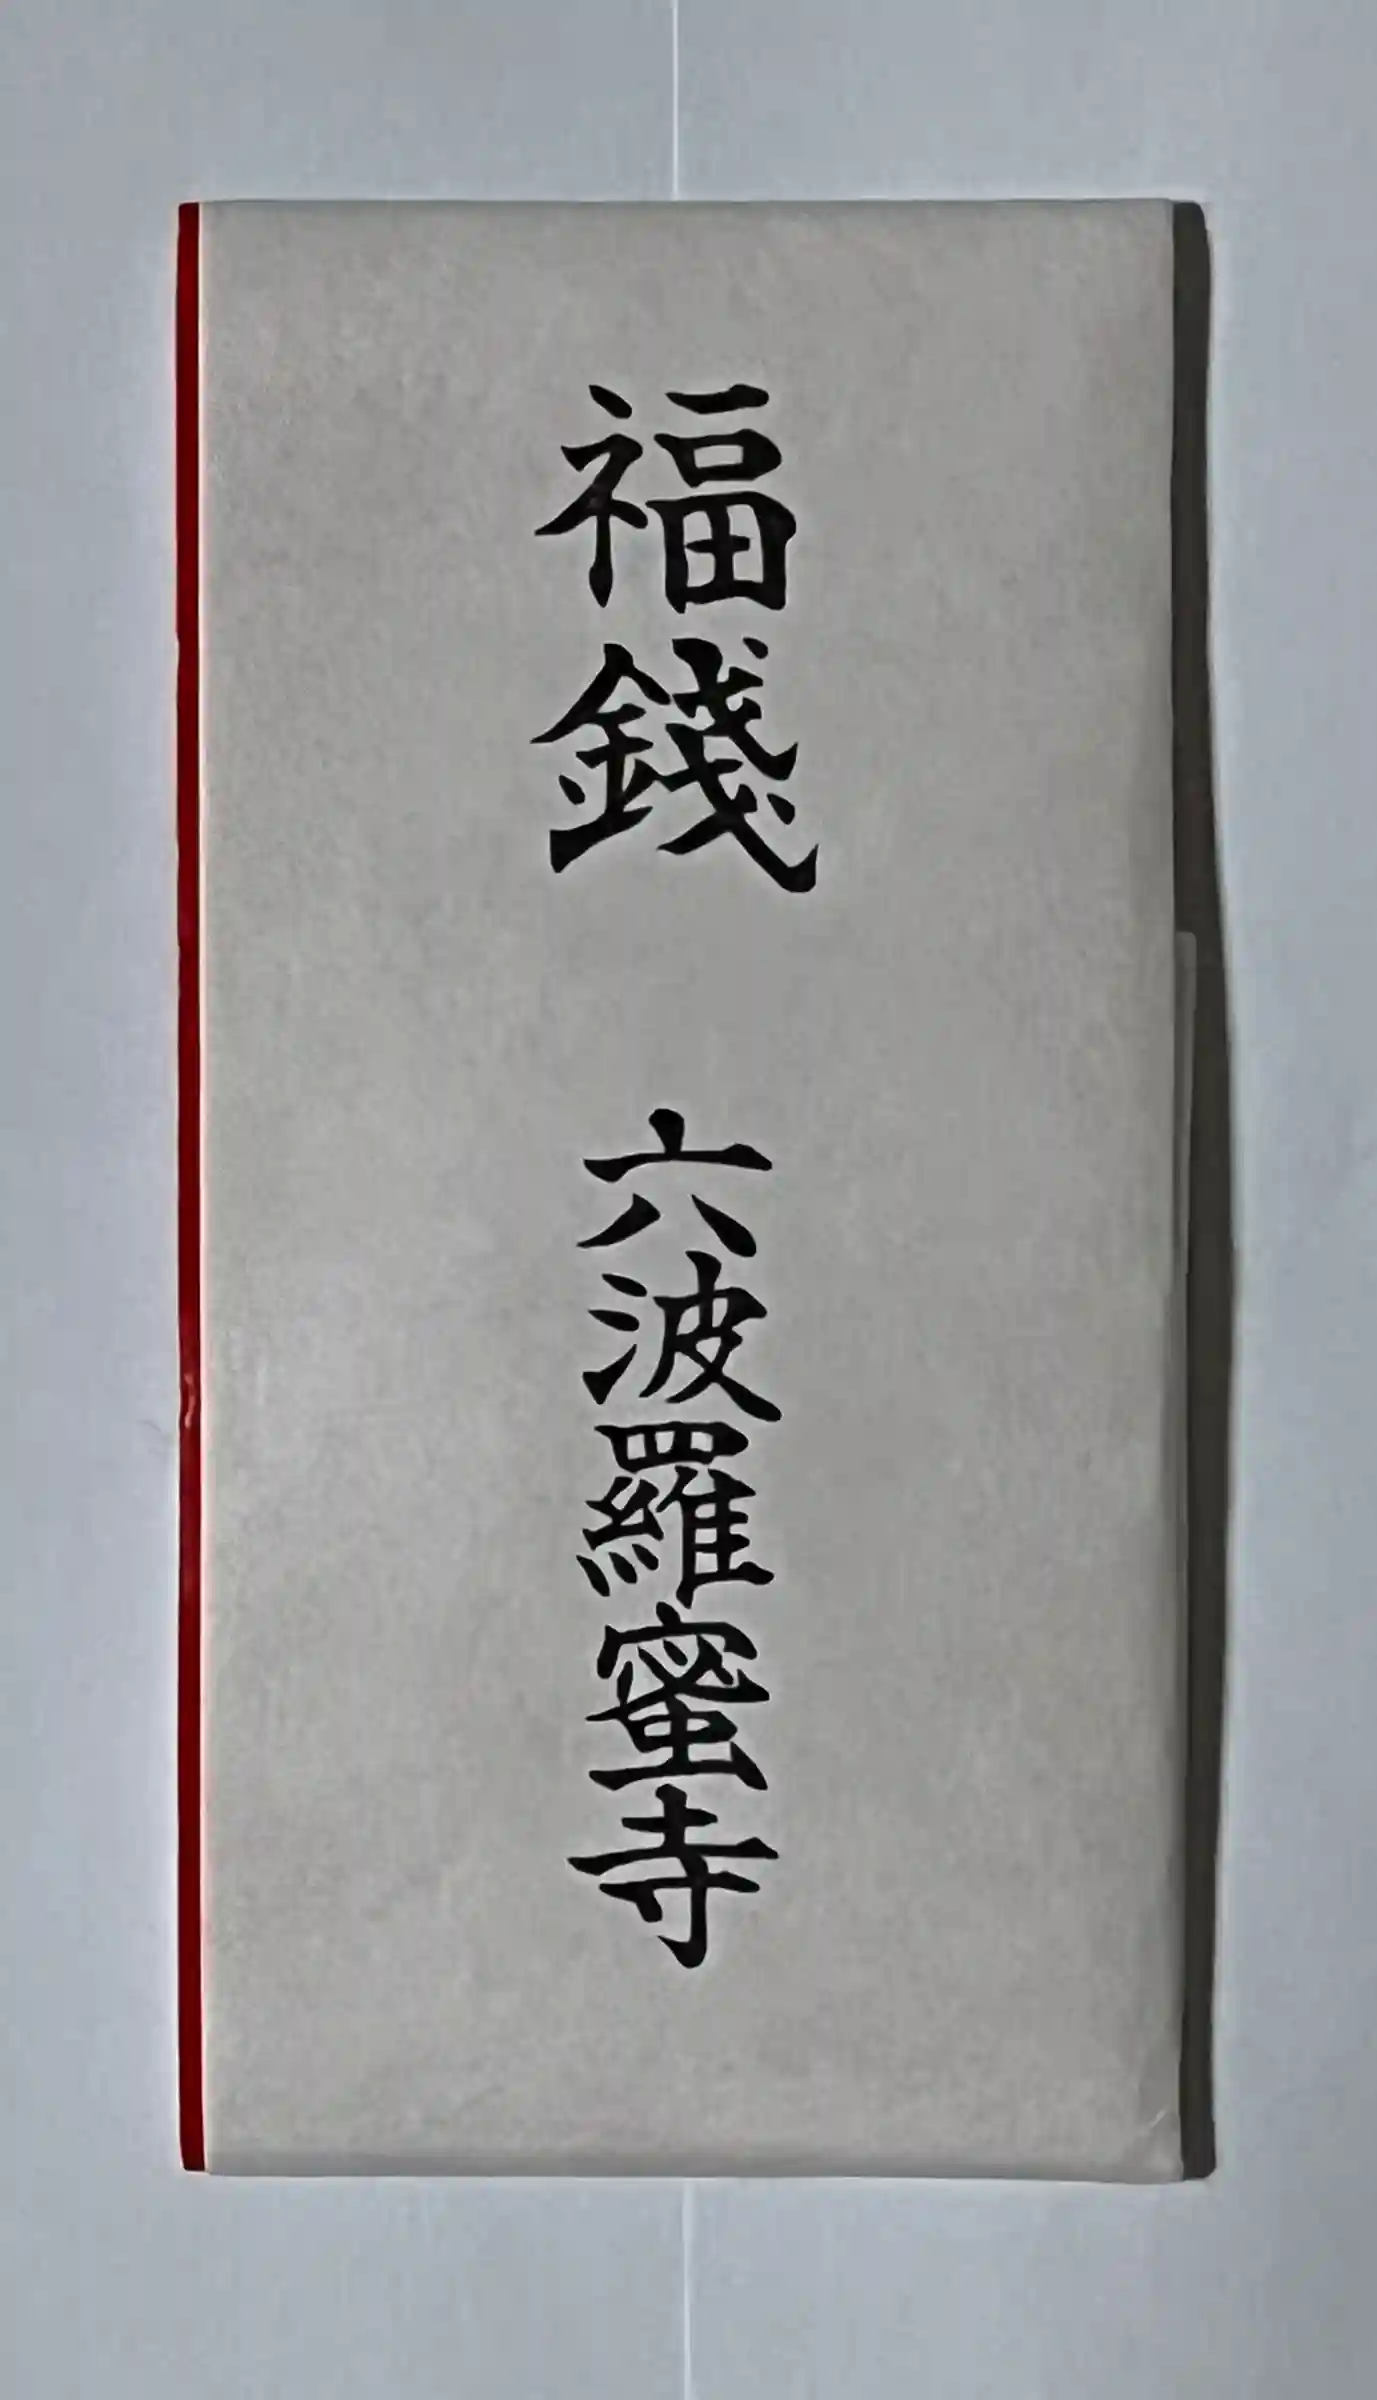 福錢 六波羅蜜寺